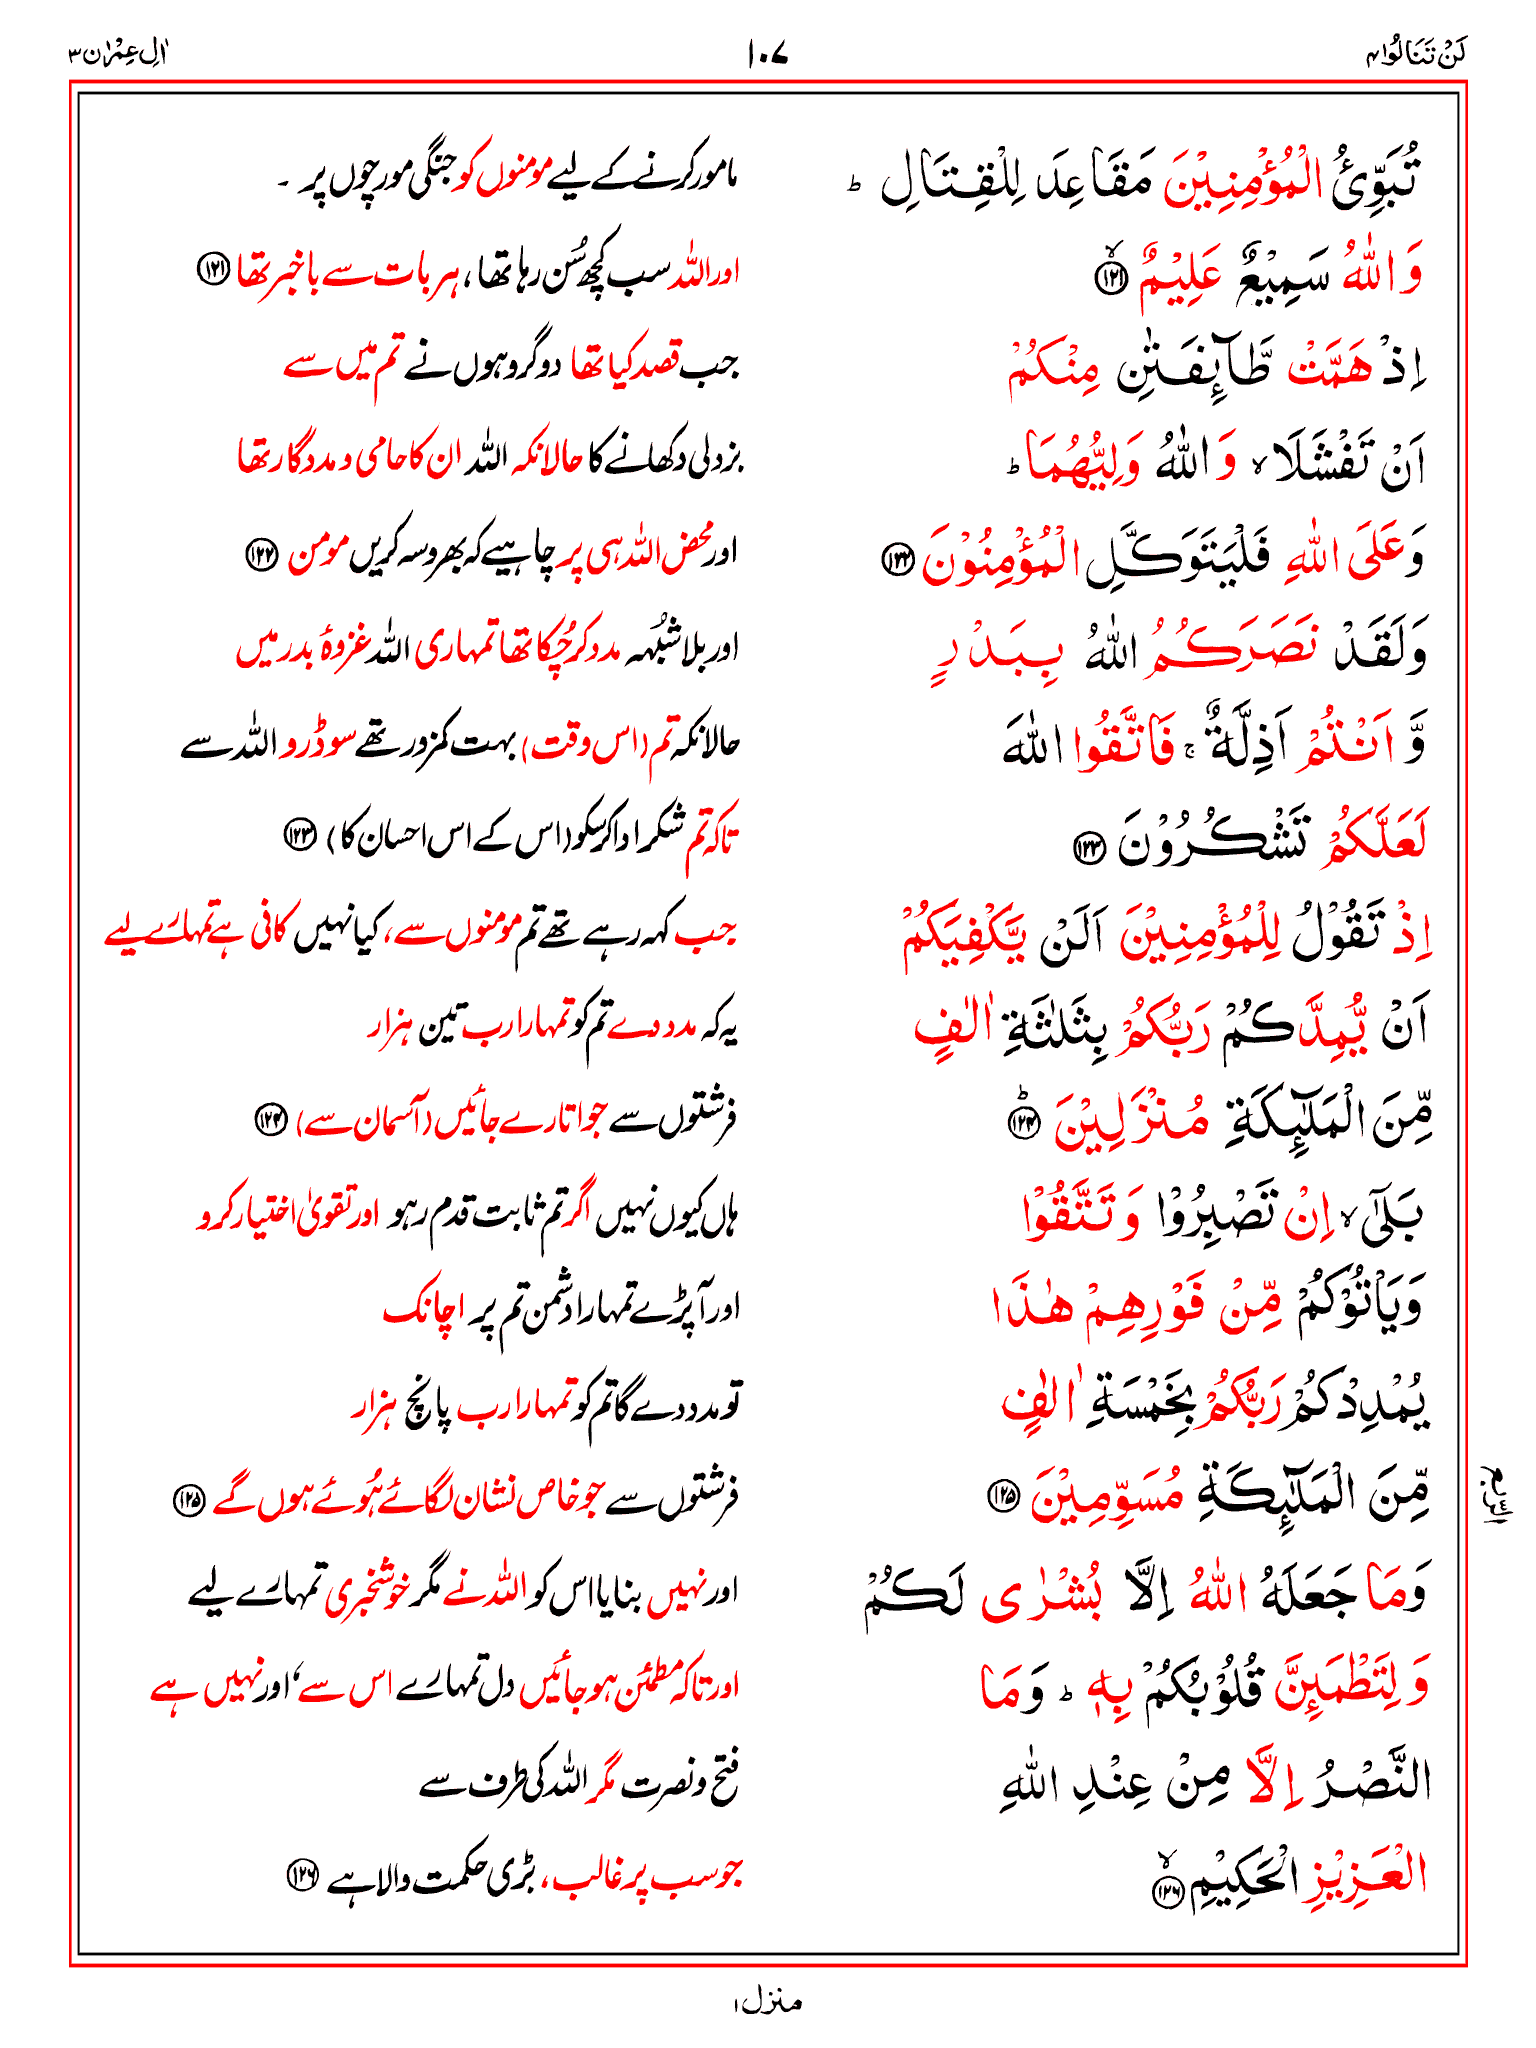 لَنْ تَنَالُوا۴
۱۰۷
اٰلِ عِمْرٰن۳
تُبَوِّئُ الْمُؤْمِنِيْنَ مَقَاعِدَ لِلْقِتَالِ ؕ
مامور کرنے کے لیے مومنوں کو جنگی مورچوں پر ۔
وَاللّٰهُ سَمِيْعٌ عَلِيْمٌ ۙ﴿۱۲۱﴾
اور اللہ سب کچھ سُن رہا تھا، ہر بات سے باخبر تھا ﴿۱۲۱﴾
اِذْ هَمَّتْ طَّآئِفَتٰنِ مِنْكُمْ
جب قصد کیا تھا دو گروہوں نے تم میں سے
اَنْ تَفْشَلَا ۙ وَاللّٰهُ وَلِيُّهُمَا ؕ
بزدلی دکھانے کا حالانکہ اللہ ان کا حامی و مددگار تھا
وَعَلَى اللّٰهِ فَلْيَتَوَكَّلِ الْمُؤْمِنُوْنَ ﴿۱۲۲﴾
اور محض اللہ ہی پر چاہیے کہ بھروسہ کریں مومن ﴿۱۲۲﴾
وَلَقَدْ نَصَرَكُمُ اللّٰهُ بِبَدْرٍ
اور بلا شبُہہ مدد کر چُکا تھا تمہاری اللہ غزوۂ بدر میں
وَّاَنْتُمْ اَذِلَّةٌ ۚ فَاتَّقُوا اللّٰهَ
حالانکہ تم (اس وقت) بہت کمزور تھے سو ڈرو اللہ سے
لَعَلَّكُمْ تَشْكُرُوْنَ ﴿۱۲۳﴾
تاکہ تم شکر ادا کر سکو (اس کے اس احسان کا) ﴿۱۲۳﴾
اِذْ تَقُوْلُ لِلْمُؤْمِنِيْنَ اَلَنْ يَّكْفِيَكُمْ
جب کہہ رہے تھے تم مومنوں سے، کیا نہیں کافی ہے تمہارے لیے
اَنْ يُّمِدَّكُمْ رَبُّكُمْ بِثَلٰثَةِ اٰلٰفٍ
یہ کہ مدد دے تم کو تمہارا رب تین ہزار
مِّنَ الْمَلٰٓئِكَةِ مُنْزَلِيْنَ ؕ﴿۱۲۴﴾
فرشتوں سے جو اتارے جائیں (آسمان سے) ﴿۱۲۴﴾
بَلٰٓى ۙ اِنْ تَصْبِرُوْا وَتَتَّقُوْا
ہاں کیوں نہیں اگر تم ثابت قدم رہو اور تقویٰ اختیار کرو
وَيَاْتُوْكُمْ مِّنْ فَوْرِهِمْ هٰذَا
اور آپڑے تمہارا دشمن تم پر اچانک
يُمْدِدْكُمْ رَبُّكُمْ بِخَمْسَةِ اٰلٰفٍ
تو مدد دے گا تم کو تمہارا رب پانچ ہزار
مِّنَ الْمَلٰٓئِكَةِ مُسَوِّمِيْنَ ﴿۱۲۵﴾
فرشتوں سے جو خاص نشان لگائے ہُوئے ہوں گے ﴿۱۲۵﴾
الربع
وَمَا جَعَلَهُ اللّٰهُ اِلَّا بُشْرٰى لَكُمْ
اور نہیں بنایا اس کو اللہ نے مگر خوشخبری تمہارے لیے
وَلِتَطْمَئِنَّ قُلُوْبُكُمْ بِهٖ ؕ وَمَا
اور تاکہ مطمئن ہو جائیں دل تمہارے اس سے ‘ اور نہیں ہے
النَّصْرُ اِلَّا مِنْ عِنْدِ اللّٰهِ
فتح و نصرت مگر اللہ کی طرف سے
الْعَزِيْزِ الْحَكِيْمِ ۙ﴿۱۲۶﴾
جو سب پر غالب، بڑی حکمت والا ہے ﴿۱۲۶﴾
منزل۱